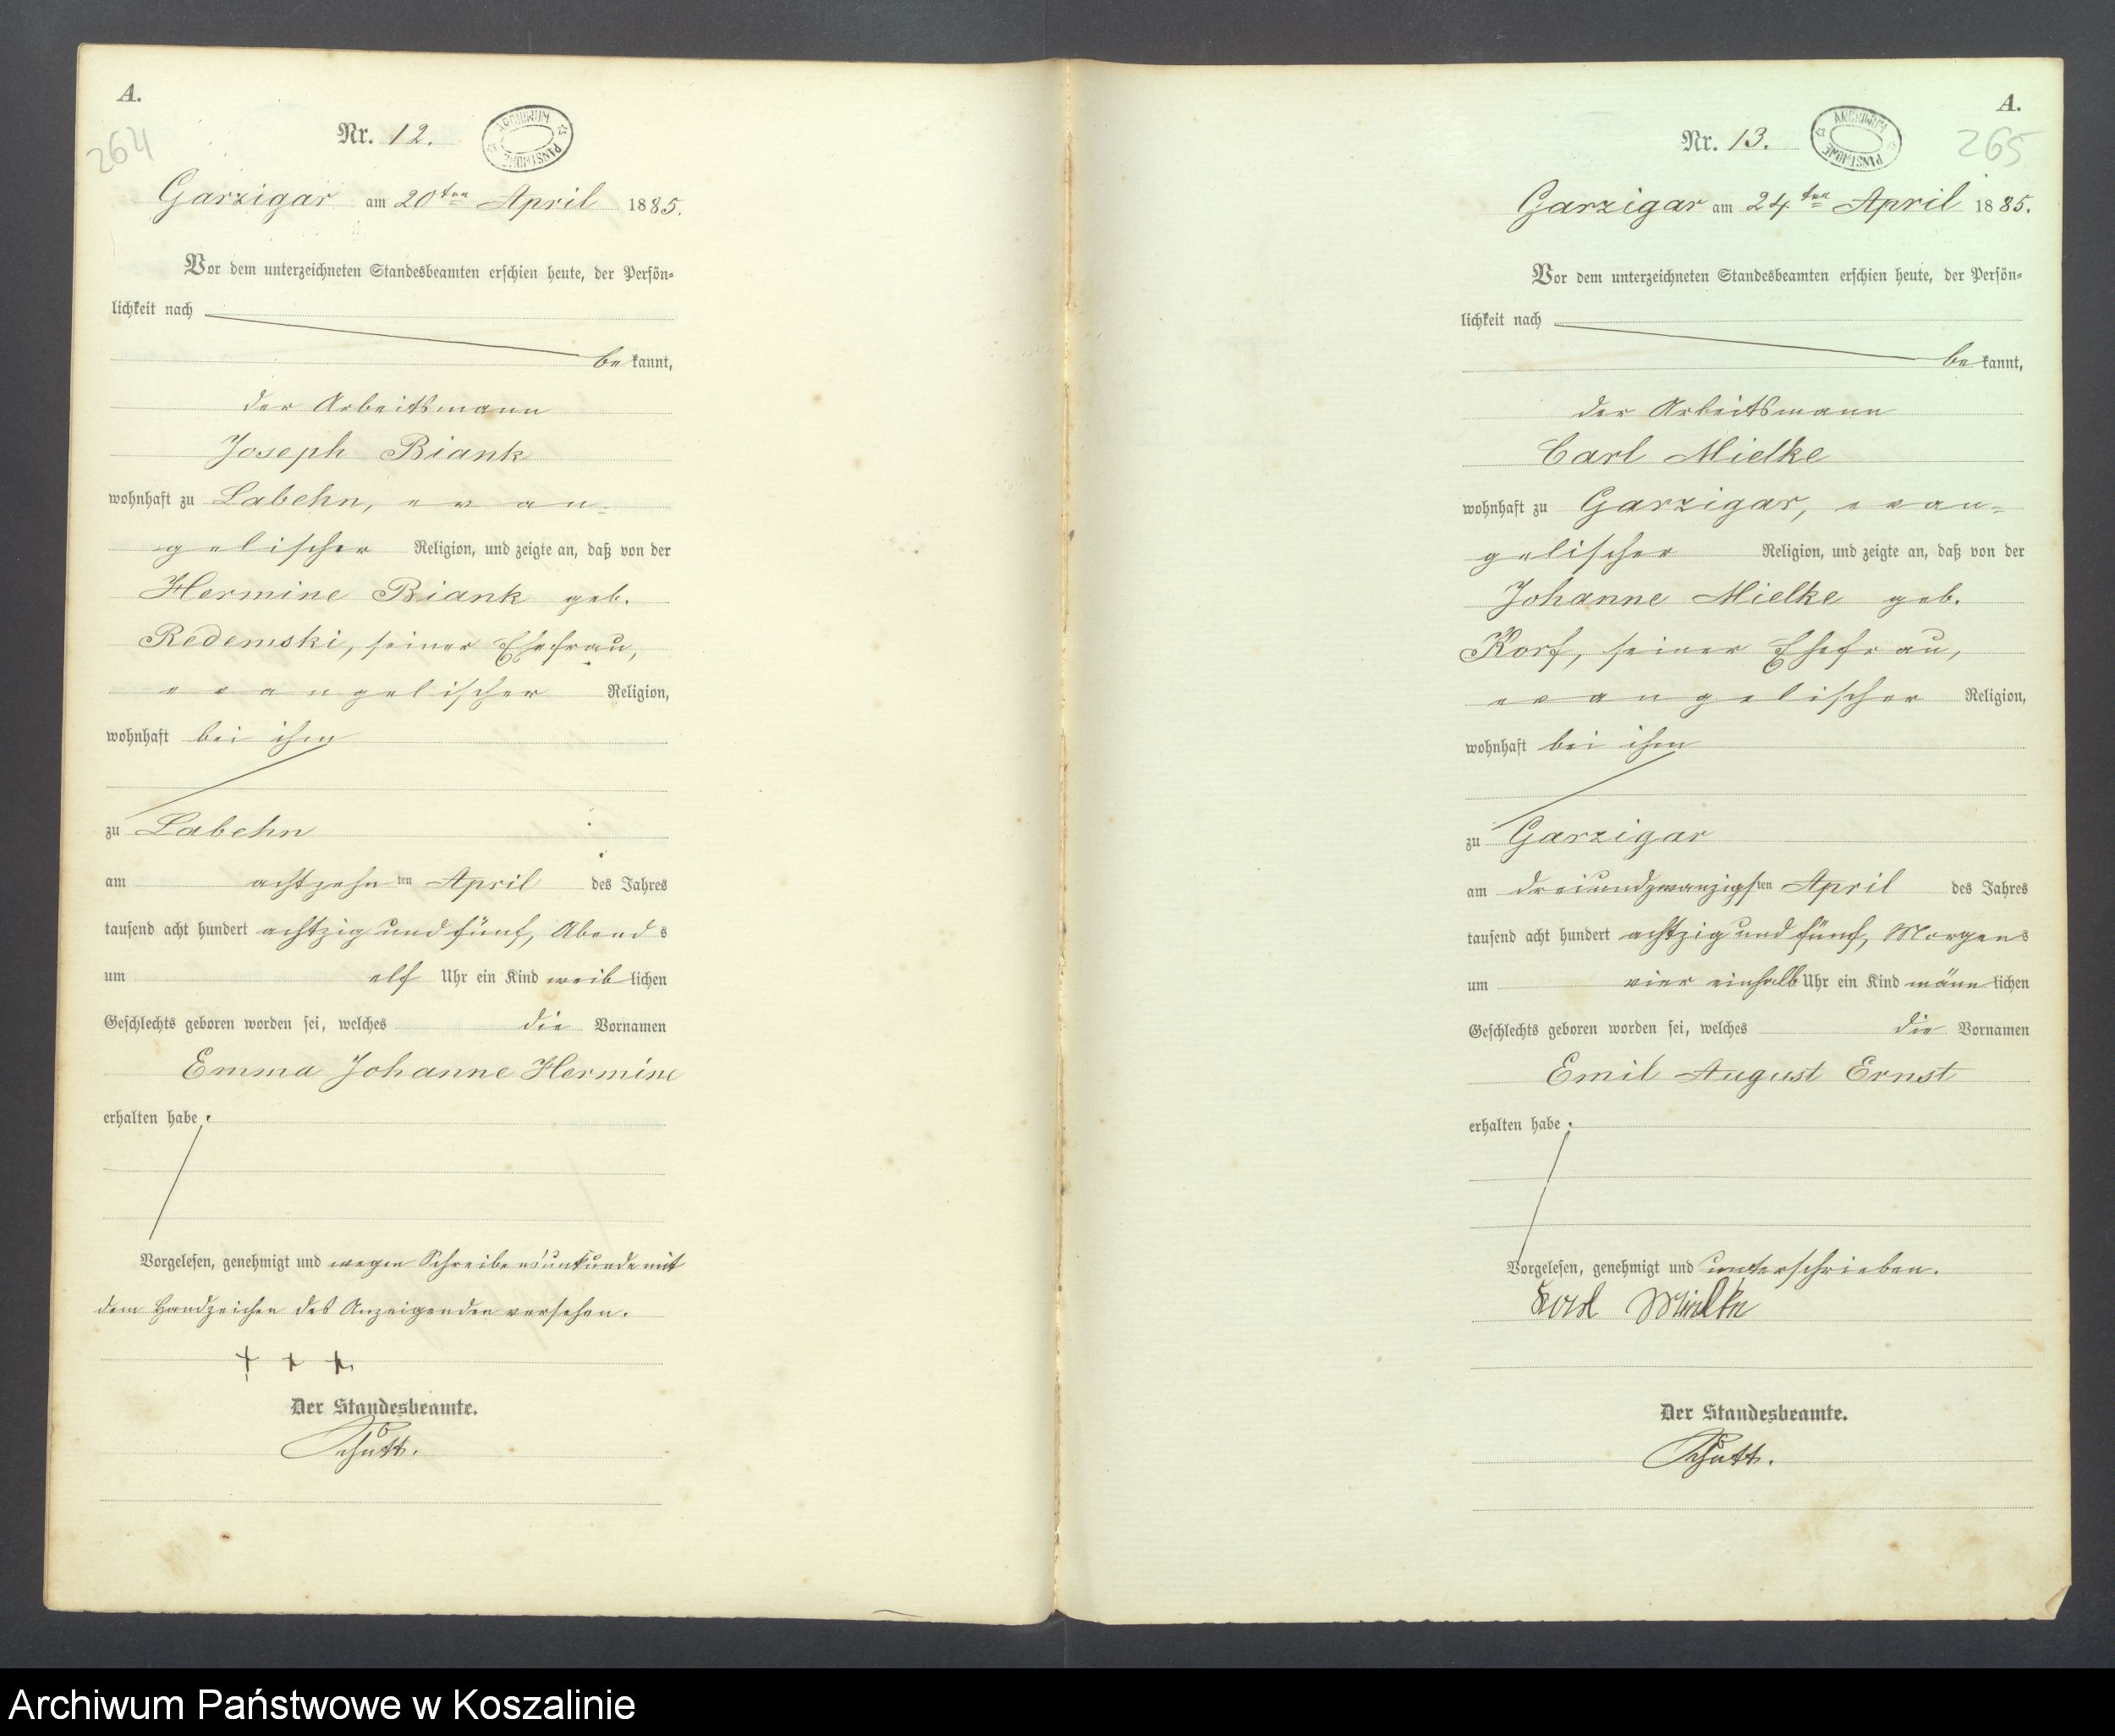 A.
264
Nr. 12.
ARCHIWUM PAŃSTWOWE
Garzigar am 20ten April 1885.
Vor dem unterzeichneten Standesbeamten erschien heute, der Persön-
lichkeit nach
bekannt,
der Arbeitsmann
Joseph Biank
wohnhaft zu Labehn, evan-
gelischer Religion, und zeigte an, daß von der
Hermine Biank geb.
Redemski, seiner Ehefrau,
evangelischer Religion,
wohnhaft bei ihm
zu Labehn
am achtzehnten April des Jahres
tausend acht hundert achtzig und fünf, Abends
um elf Uhr ein Kind weiblichen
Geschlechts geboren worden sei, welches die Vornamen
Emma Johanne Hermine
erhalten habe.
Vorgelesen, genehmigt und wegen Schreibensunkunde mit
dem Handzeichen des Anzeigenden versehen.
+ + +
Der Standesbeamte.
Schütt.
A.
265
Nr. 13.
ARCHIWUM PAŃSTWOWE
Garzigar am 24ten April 1885.
Vor dem unterzeichneten Standesbeamten erschien heute, der Persön-
lichkeit nach
bekannt,
der Arbeitsmann
Carl Mielke
wohnhaft zu Garzigar, evan-
gelischer Religion, und zeigte an, daß von der
Johanne Mielke geb.
Korf, seiner Ehefrau,
evangelischer Religion,
wohnhaft bei ihm
zu Garzigar
am dreiundzwanzigsten April des Jahres
tausend acht hundert achtzig und fünf, Morgens
um vier einhalb Uhr ein Kind männlichen
Geschlechts geboren worden sei, welches die Vornamen
Emil August Ernst
erhalten habe.
Vorgelesen, genehmigt und unterschrieben.
Karl Mielke
Der Standesbeamte.
Schütt.
Archiwum Państwowe w Koszalinie